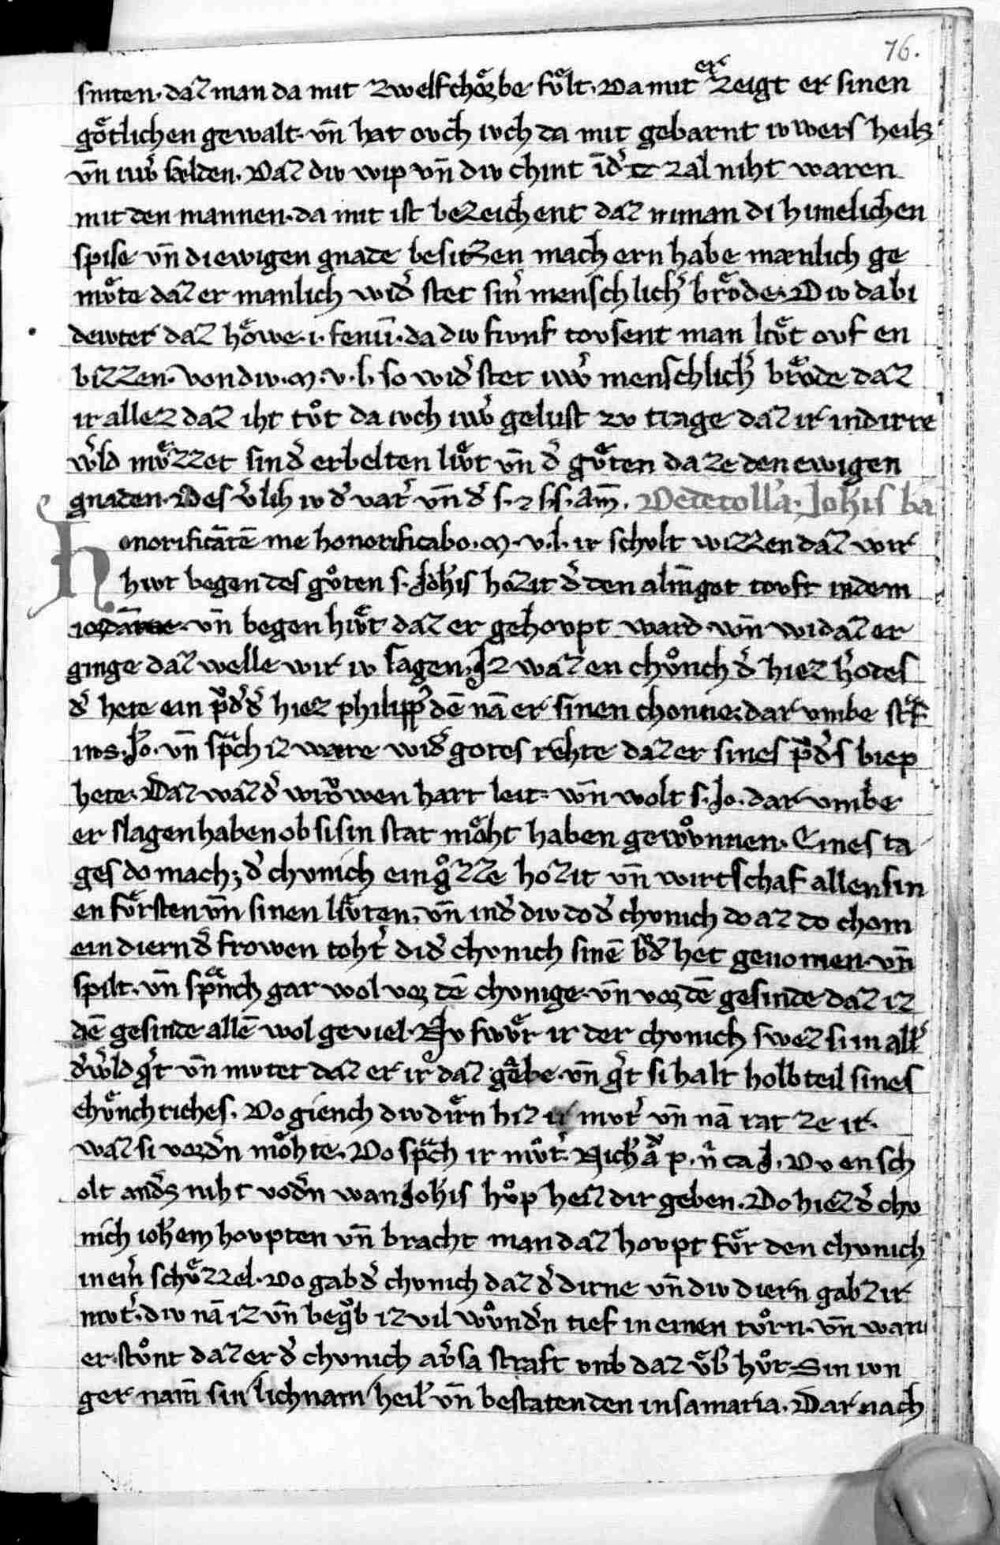 76.
sniten. daz man da mit zwelf chöꝛbe fvͤlt. Da mit erzeigt er sinen
götlichen gewalt. vn̄ hat ovch ivch da mit gebarnt iwwers heils
vn̄ iwr̄ sælden. Daz div wip vn̄ div chint in d̄ zal niht waren
mit den mannen. da mit ist bezeichent daz niman di himelichen
spise vn̄ di ewigen gnade besitzen mach ern habe mænlich ge
mvͤte daz er manlich wid̄ stet sin̄ menschlich̄ brͦde. Div da bi
dewtet daz höwe. i. fenū. da div fivnf tovsent man lwͤt ovf en
bizzen. von div. m. v. l. so wid̄ stet iwr̄ menschlich̄ brͦde daz
ir allez daz iht tvͦt da ivch iwr̄ gelust zv trage daz ir in dirre
w̄ld mvͤzzet sin d̄ erbelten livͤt vn̄ d̄ gvͤten da ze den ewigen
gnaden. Des v̄lih iv d̄ vat̄ vn̄ d̄ s. ⁊ s. s. Am̄. De decoll'a. Joh'is ba
Honorificātē me honorificabo. m. v. l. ir schvlt wizzen daz wir
hivt begen des gvͦten s. Joh'is hozit d̄ den alm̄. got tovft in dem
iordāne. vn̄ begen hivͤt daz er gehovpt ward. vn̄ wi daz er
ginge daz welle wir iv sagen. Jz waz en chvͤnch d̄ hiez h'odes
d̄ hete ein pͮd̄ d̄ hiez philipp' dē nā er sinen chonne. dar vmbe strͣf
ins. Jo. vn̄ spͣch iz ware wid̄ gotes rehte daz er sines pͮd̄s wip
hete. Daz waz d̄ vrͦwen hart leit. vn̄ wolt s. Jo. dar vmbe
er slagen haben ob si sin stat möht haben gewvnnen. Eines ta
ges do mach; d̄ chvnich ein gͦzze hozit vn̄ wirtschaf allen sin
en fvͤrsten vn̄ sinen livͤten. vn̄ in d̄ div do d̄ chvnich do az do chom
ein diern d̄ frowen toht̄ di d̄ chvnich sinē bͮd̄ het genomen. vn̄
spilt. vn̄ spͣnch gar wol voꝛ dē chvnige. vn̄ voꝛ dē gesinde daz iz
dē gesinde allē wol geviel. Nv swvͤr ir der chvnich swez si in all'
d̄ w̄ld gͤt vn̄ mvtet daz er ir daz gæbe. vn̄ gͤt si halt halbteil sines
chvͤnchriches. Do giench div dirn hiz ir mvt̄ vn̄ nā rat ze ir.
waz si voꝛd̄n möhte. Do spͣch ir mvͦt̄. Nich' a p. n̄ ca J. Dv en sch
olt and̄s niht vod̄n wan Joh'is hvͦp heiz dir geben. Do hiez d̄ chv
nich ioh'em hovpten vn̄ bracht man daz hovpt fvͤr den chvnich
in eīr schvͤzzel. Do gab d̄ chvnich daz d̄ dirne vn̄ div diern gab z ir
mvt̄. div nā iz vn̄ begͮb iz vil wvͦnd̄n tief in einen tvͦrn. vn̄ wan
er. stvͦnt daz er d̄ chvnich ab' sa straft vnb daz vͤb' hvͦr. Sin ivn
ger nam̄ sin lichnam heil' vn̄ bestaten den in samaria. Dar nach